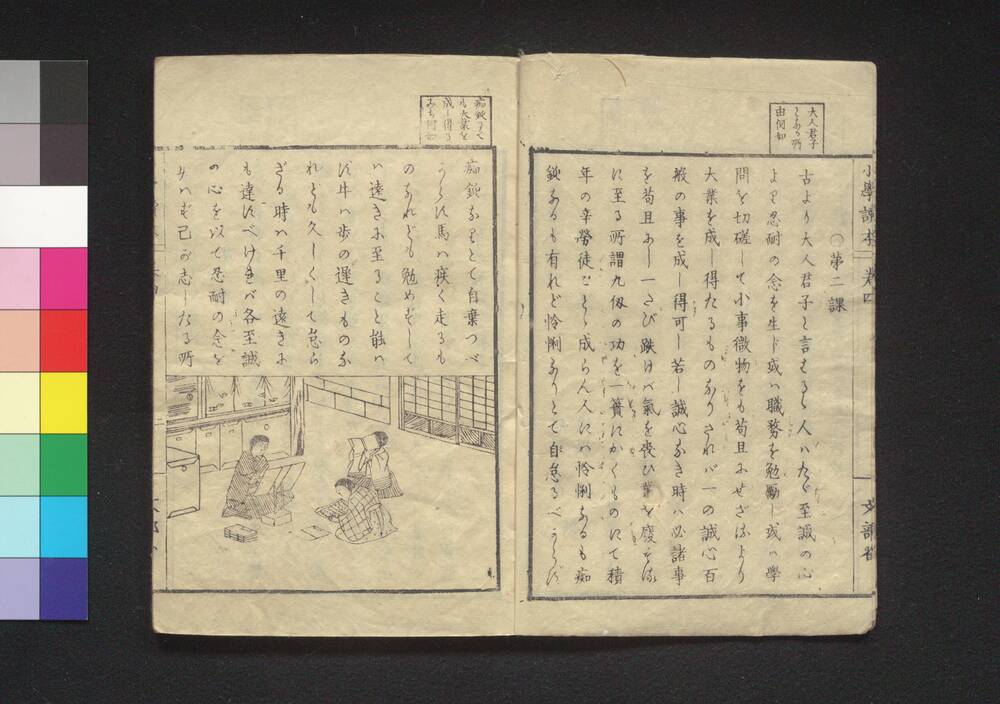 小學讀本 卷四
文部省
大人君子
となる所
由何如
○第二課
古より大人君子と言はるゝ人ハたゞ至誠の心
より忍耐の念を生ド或ハ職務を勉勵し或ハ學
問を切磋して小事微物をも苟且にせざるより
大業を成し得たるものなりされバ一の誠心百
般の事を成し得可し若し誠心なき時ハ必諸事
を苟且にし一たび跌けバ氣を喪ひ業を廢するに
に至る所謂九仭の功を一簣にかくものにて積
年の辛勞徒ごとゝ成らん人にハ怜悧なるも痴
鈍なるも有れど怜悧なりとて自怠るべからず
痴鈍にて
も大業を
成し得る
こと何如
痴鈍なりとて自棄つべ
からず馬ハ疾く走るも
のなれども勉めずして
ハ遠きに至ること能ハ
ず牛ハ歩の遅きものな
れども久しくして怠ら
ざる時ハ千里の遠きに
も達すべけれバ各至誠
の心を以て忍耐の念を
むけ己が志したる所